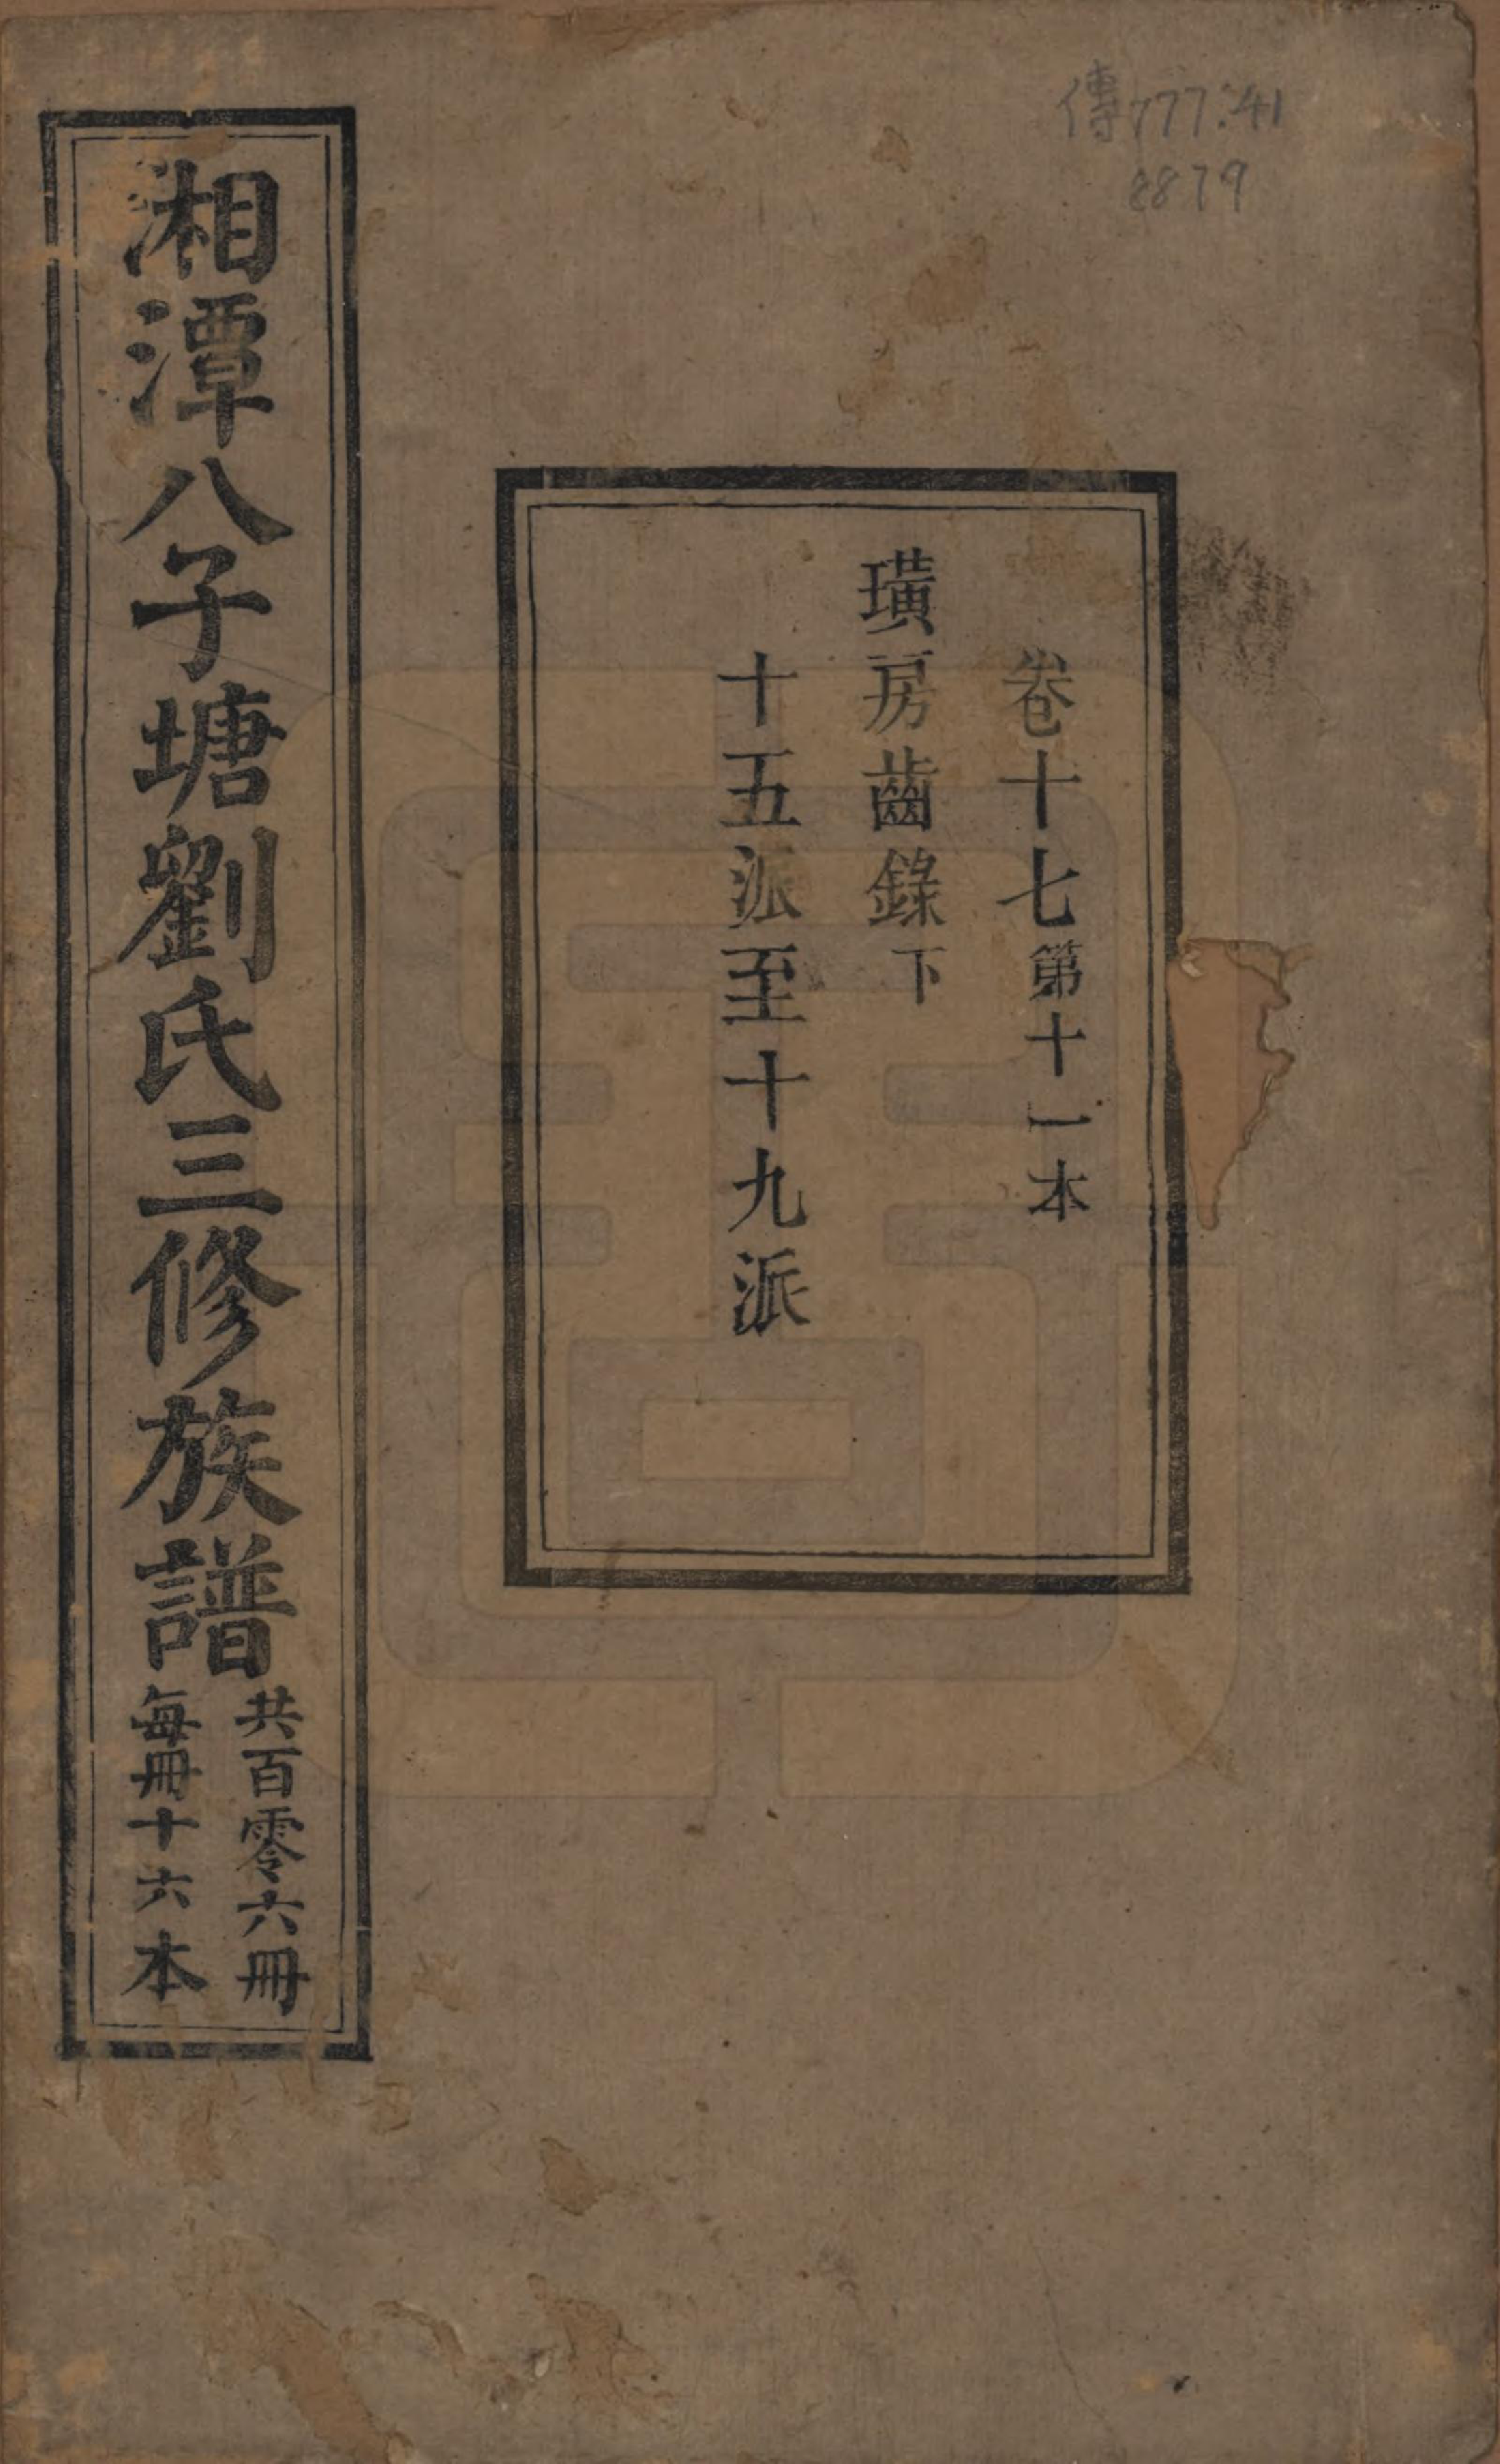 傳777.41
8879
卷十七第十一本
璜房齒錄下
十五派至十九派
湘潭八子塘劉氏三修族譜
共百零六冊
每冊十六本